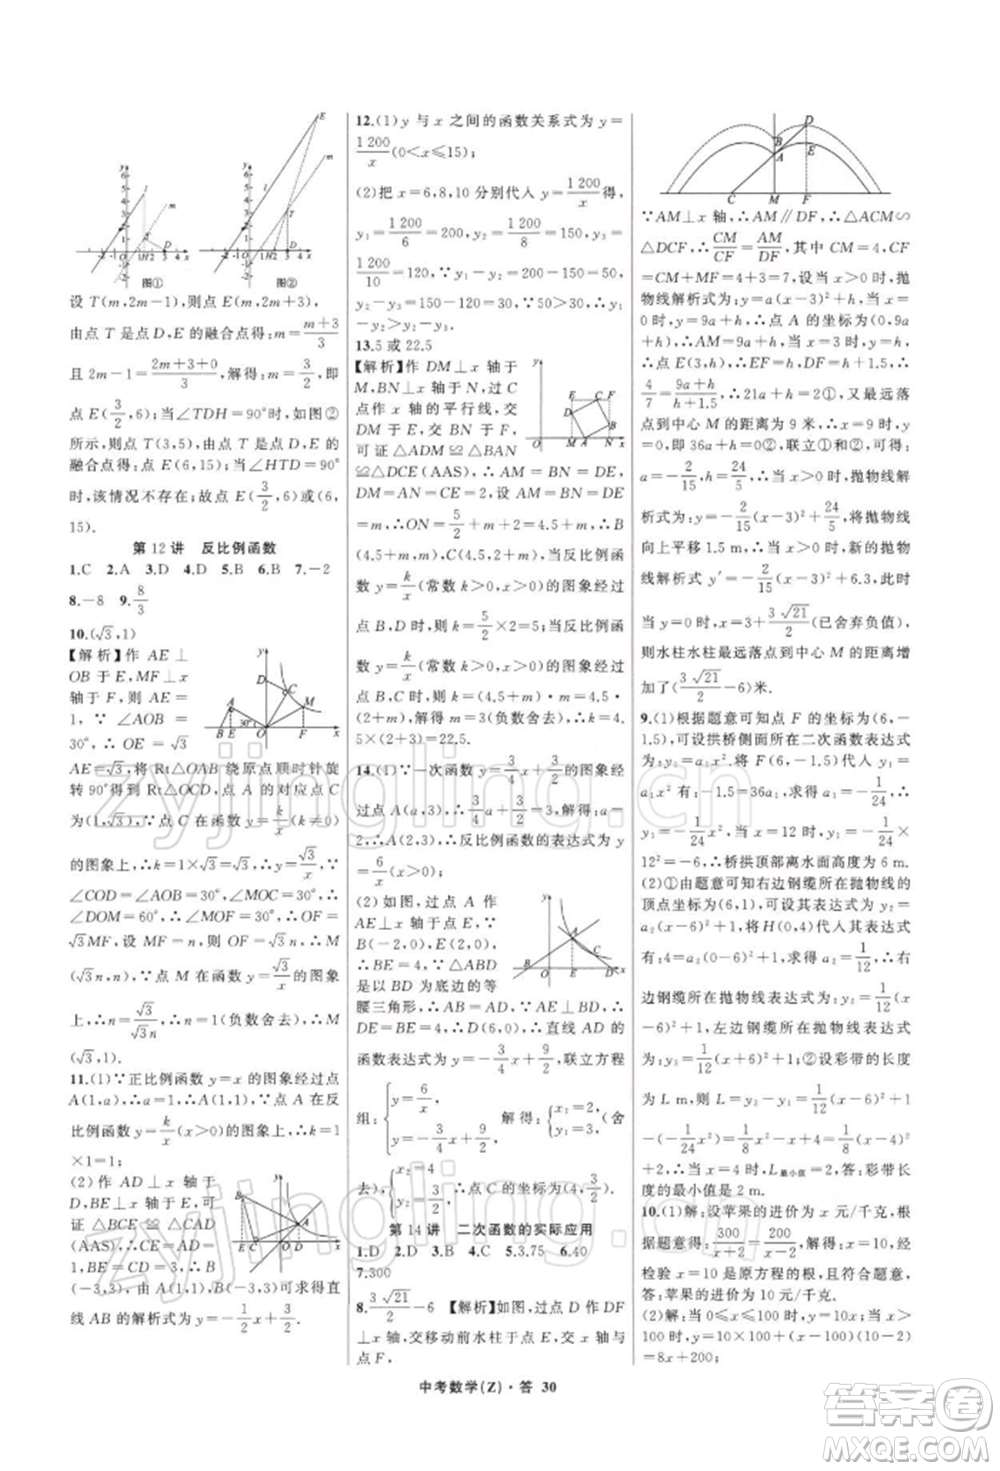 设 T(m,2m－1),则点 E(m,2m+3),
由点 T 是点 D,E 的融合点得:m=(m+3)/3
且 2m－1=(2m+3+0)/3,解得:m=3/2,即
点 E(3/2,6);当∠TDH=90°时,如图②
所示,则点 T(3,5),由点 T 是点 D,E 的
融合点得:点 E(6,15);当∠HTD=90°
时,该情况不存在;故点 E(3/2,6)或(6,
15).
第 12 讲 反比例函数
1.C 2.A 3.D 4.D 5.B 6.B 7.－2
8.－8 9.8/3
10.(√3,1)
【解析】作 AE⊥
OB 于 E,MF⊥x
轴于 F,则 AE=
1,∵∠AOB=
30°,∴OE=√3
AE=√3,将 Rt△OAB 绕原点顺时针旋
转 90°得到 Rt△OCD,点 A 的对应点 C
为(1,√3),∵点 C 在函数 y=k/x(k≠0)
的图象上,∴k=1×√3=√3,∴y=√3/x,∵
∠COD=∠AOB=30°,∠MOC=30°,∴
∠DOM=60°,∴∠MOF=30°,∴OF=
√3MF,设 MF=n,则 OF=√3n,∴M
(√3n,n),∵点 M 在函数 y=√3/x 的图象
上,∴n=√3/(√3n),∴n=1(负数舍去),∴M
(√3,1).
11.(1)∵正比例函数 y=x 的图象经过点
A(1,a),∴a=1,∴A(1,1),∵点 A 在
反比例函数 y=k/x(x>0)的图象上,∴k=1
×1=1;
(2)作 AD⊥x 轴于
D,BE⊥x 轴于 E,可
证△BCE≌△CAD
(AAS),∴CE=AD
=1,BE=CD=3,∴B
(－3,3),由点 A(1,1)和 B(－3,3)可求得直
线 AB 的解析式为 y=－1/2x+3/2.
12.(1)y 与 x 之间的函数关系式为 y=
1 200/x(0<x≤15);
(2)把 x=6,8,10 分别代入 y=1 200/x得,
y₁=1 200/6=200,y₂=1 200/8=150,y₃=1 200/10
=120,∵y₁－y₂=200－150=50,
y₂－y₃=150－120=30,∵50>30,∴y₁
－y₂>y₂－y₃.
13.5 或 22.5
【解析】作 DM⊥x 轴于
M,BN⊥x 轴于 N,过 C
点作 x 轴的平行线,交
DM 于 E,交 BN 于 F,
可证△ADM≌△BAN
≌△DCE(AAS),∴AM=BN=DE,
DM=AN=CE=2,∵AM=BN=DE
=m,∴ON=5/2+m+2=4.5+m,∴B
(4.5+m,m),当反比例函
数 y=k/x(常数 k>0,x>0)的图象经过
点 B,D时,则 k=5/2×2=5,当反比例函
数 y=k/x(常数 k>0,x>0)的图象经过
点 B,C时,则 k=(4.5+m)·m=4.5·
(2+m),解得 m=3(负数舍去),∴k=4.
5×(2+3)=22.5.
14.(1)∵一次函数 y=3/4x+3/2的图象经
过点 A(a,3),∴3/4a+3/2=3,解得 a=
2,∴A(2,3),∴反比例函数的表达式为 y
=6/x(x>0);
(2)如图,过点 A 作
AE⊥x 轴于点 E,∵
B(－2,0),E(2,0),
∴BE=4,∵△ABD
是以 BD 为底边的等
腰三角形,∴AB=AD,∵AE⊥BD,∴
DE=BE=4,∴D(6,0),∴直线 AD 的
函数表达式为 y=－3/4x+9/2,联立方程
组:{y=6/x, y=－3/4x+9/2, 解得:{x₁=2, y₁=3,(舍
去),{x₂=4, y₂=3/2,∴点 C 的坐标为(4,3/2).
第 14 讲 二次函数的实际应用
1.D 2.D 3.B 4.C 5.3.75 6.40
7.300
8.3√21/2－6 【解析】如图,过点 D 作 DF
⊥x 轴,交移动前水柱于点 E,交 x 轴与
点 F,
∵AM⊥x 轴,∴AM∥DF,∴△ACM∽
△DCF,∴CM/CF=AM/DF,其中 CM=4,CF
=CM+MF=4+3=7,设当 x>0时,抛
物线解析式为:y=a(x－3)²+h(x>0),
当 x=0 时,y=9a+h,∴点 A 的坐标为(0,9a
+h),∴AM=9a+h,∵点 E 的坐标为(3,h),
∴点 E(3,h),∴EF=h,∴DF=h+1.5,∴
4/7=(9a+h)/(h+1.5),∴21a+h=2①,又最远落
点到中心 M 的距离为 9 米,∴x=9 时,y
=0,即:36a+h=0②,联立①和②,可得:
a=－2/15,h=24/5,∴移动前,抛物线的解
析式为:y=－2/15(x－3)²+24/5(x>0),∵
向上平移 1.5 m,∴移动后,当 x>0 时,抛物
线解析式 y′=－2/15(x－3)²+6.3,此时
当 y=0 时,x=3+3√21/2(已舍弃负值),
则水柱水柱最远落点到中心 M 的距离增
加了(3√21/2－6)米.
9.(1)根据题意可知点 F 的坐标为(6,－
1.5),可设拱桥侧面所在二次函数表达式
为:y₁=a₁x²,将 F(6,－1.5)代入 y₁=
a₁x²有:－1.5=36a₁,求得 a₁=－1/24,∴
y₁=－1/24x²,当 x=12 时,y₁=－1/24×
12²=－6,∴桥拱顶部离水面高度为 6 m.
(2)①由题意可知右边钢缆所在抛物线的
顶点坐标为(6,1),可设其表达式为 y₂=
a₂(x－6)²+1,将 H(0,4)代入其表达式有:
4=a₂(0－6)²+1,求得 a₂=1/12,∴右
边钢缆所在抛物线表达式为:y₂=1/12(x－
6)²+1,左边钢缆所在抛物线表达式为:y₃
=1/12(x+6)²+1;②设彩带的长度
为 L m,则 L=y₂－y₁=1/12(x－6)²+1
－(－1/24x²)=1/8x²－x+4=1/8(x－4)²
+2,∴当 x=4 时,L最小值=2,答:彩带长
度的最小值是 2 m.
10.(1)解:设苹果的进价为 x 元/千克,
根据题意得:300/(x+2)=200/(x－2),解得:x=10,经
检验 x=10 是原方程的根,且符合题意,
答:苹果的进价为 10 元/千克.
(2)解:当 0≤x≤100 时,y=10x;当 x>
100 时,y=10×100+(x－100)(10－2)
=8x+200;
中考数学(Z)·答 30
zyjingling.cn
zyjingling.cn
答案圈
MXQE.COM